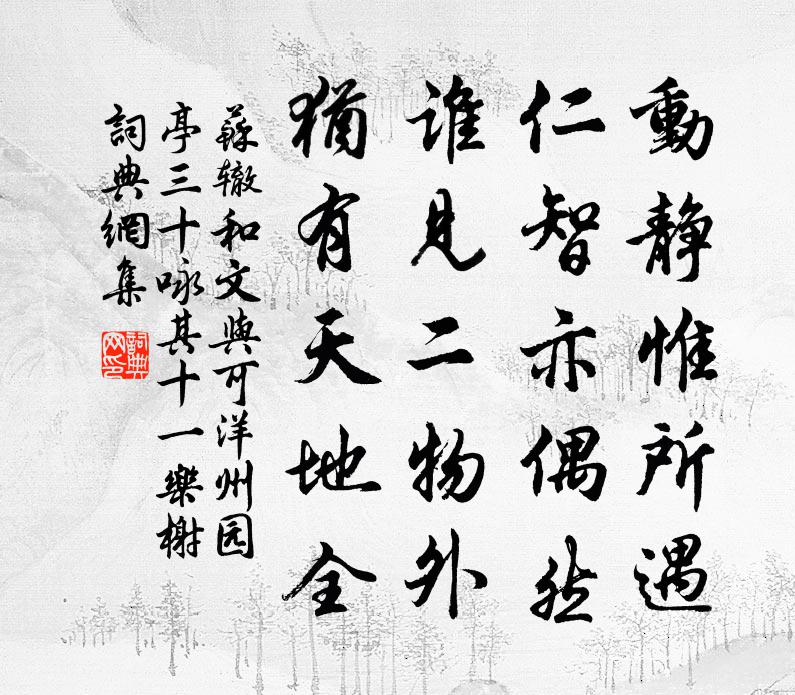 動靜惟所遇
仁智亦偶然
誰見二物外
猶有天地全
蘇辙和文與可洋州园
亭三十咏其十一樂榭
詞典網集
詞典
网印